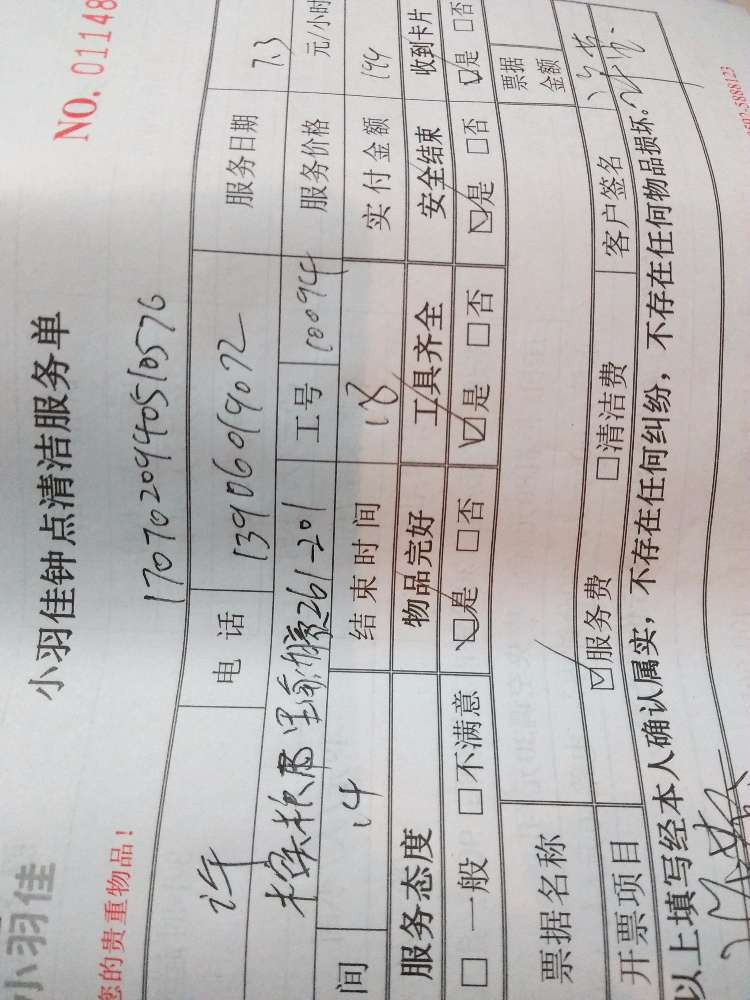 小羽佳
小羽佳钟点清洁服务单
您的贵重物品！
NO. 01148
1707020994051057 6
许 电话 13906019072 服务日期 7.3
261-201 工号 10094 服务价格 元/小时
间 14 结束时间 18 实付金额 194
服务态度 物品完好 工具齐全 安全结束 收到卡片
□ 一般 □不满意 ☑是 □否 ☑是 □否 ☑是 □否 ☑是 □否
票据名称 票据金额
开票项目 ☑服务费 □清洁费 客户签名
以上填写经本人确认属实，不存在任何纠纷，不存在任何物品损坏。
0592-5888123